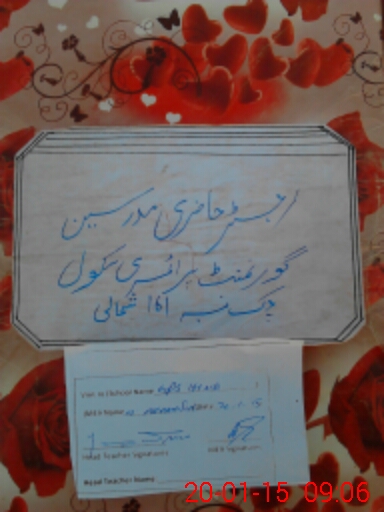 رجسٹر حاضری مدرسین
گورنمنٹ پرائمری سکول
چک نمبر 161 شمالی
Visited School Name GPS 161 N.B
MEA Name
Head Teacher Signature
MEA Signature
Head Teacher Name
20-01-15 09:06